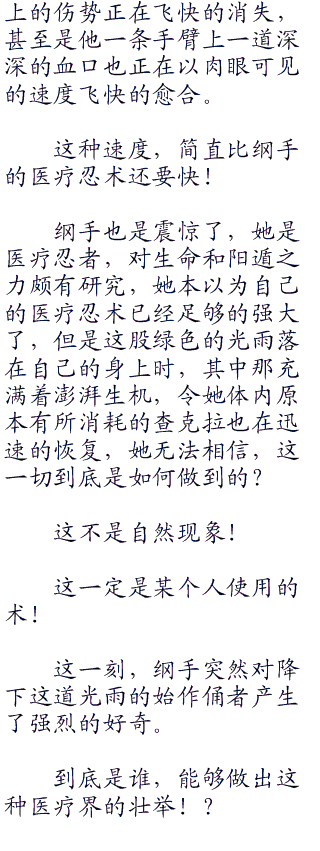 上的伤势正在飞快的消失，
甚至是他一条手臂上一道深
深的血口也正在以肉眼可见
的速度飞快的愈合。
这种速度，简直比纲手
的医疗忍术还要快！
纲手也是震惊了，她是
医疗忍者，对生命和阳遁之
力颇有研究，她本以为自己
的医疗忍术已经足够的强大
了，但是这股绿色的光雨落
在自己的身上时，其中那充
满着澎湃生机，令她体内原
本有所消耗的查克拉也在迅
速的恢复，她无法相信，这
一切到底是如何做到的？
这不是自然现象！
这一定是某个人使用的
术！
这一刻，纲手突然对降
下这道光雨的始作俑者产生
了强烈的好奇。
到底是谁，能够做出这
种医疗界的壮举！？